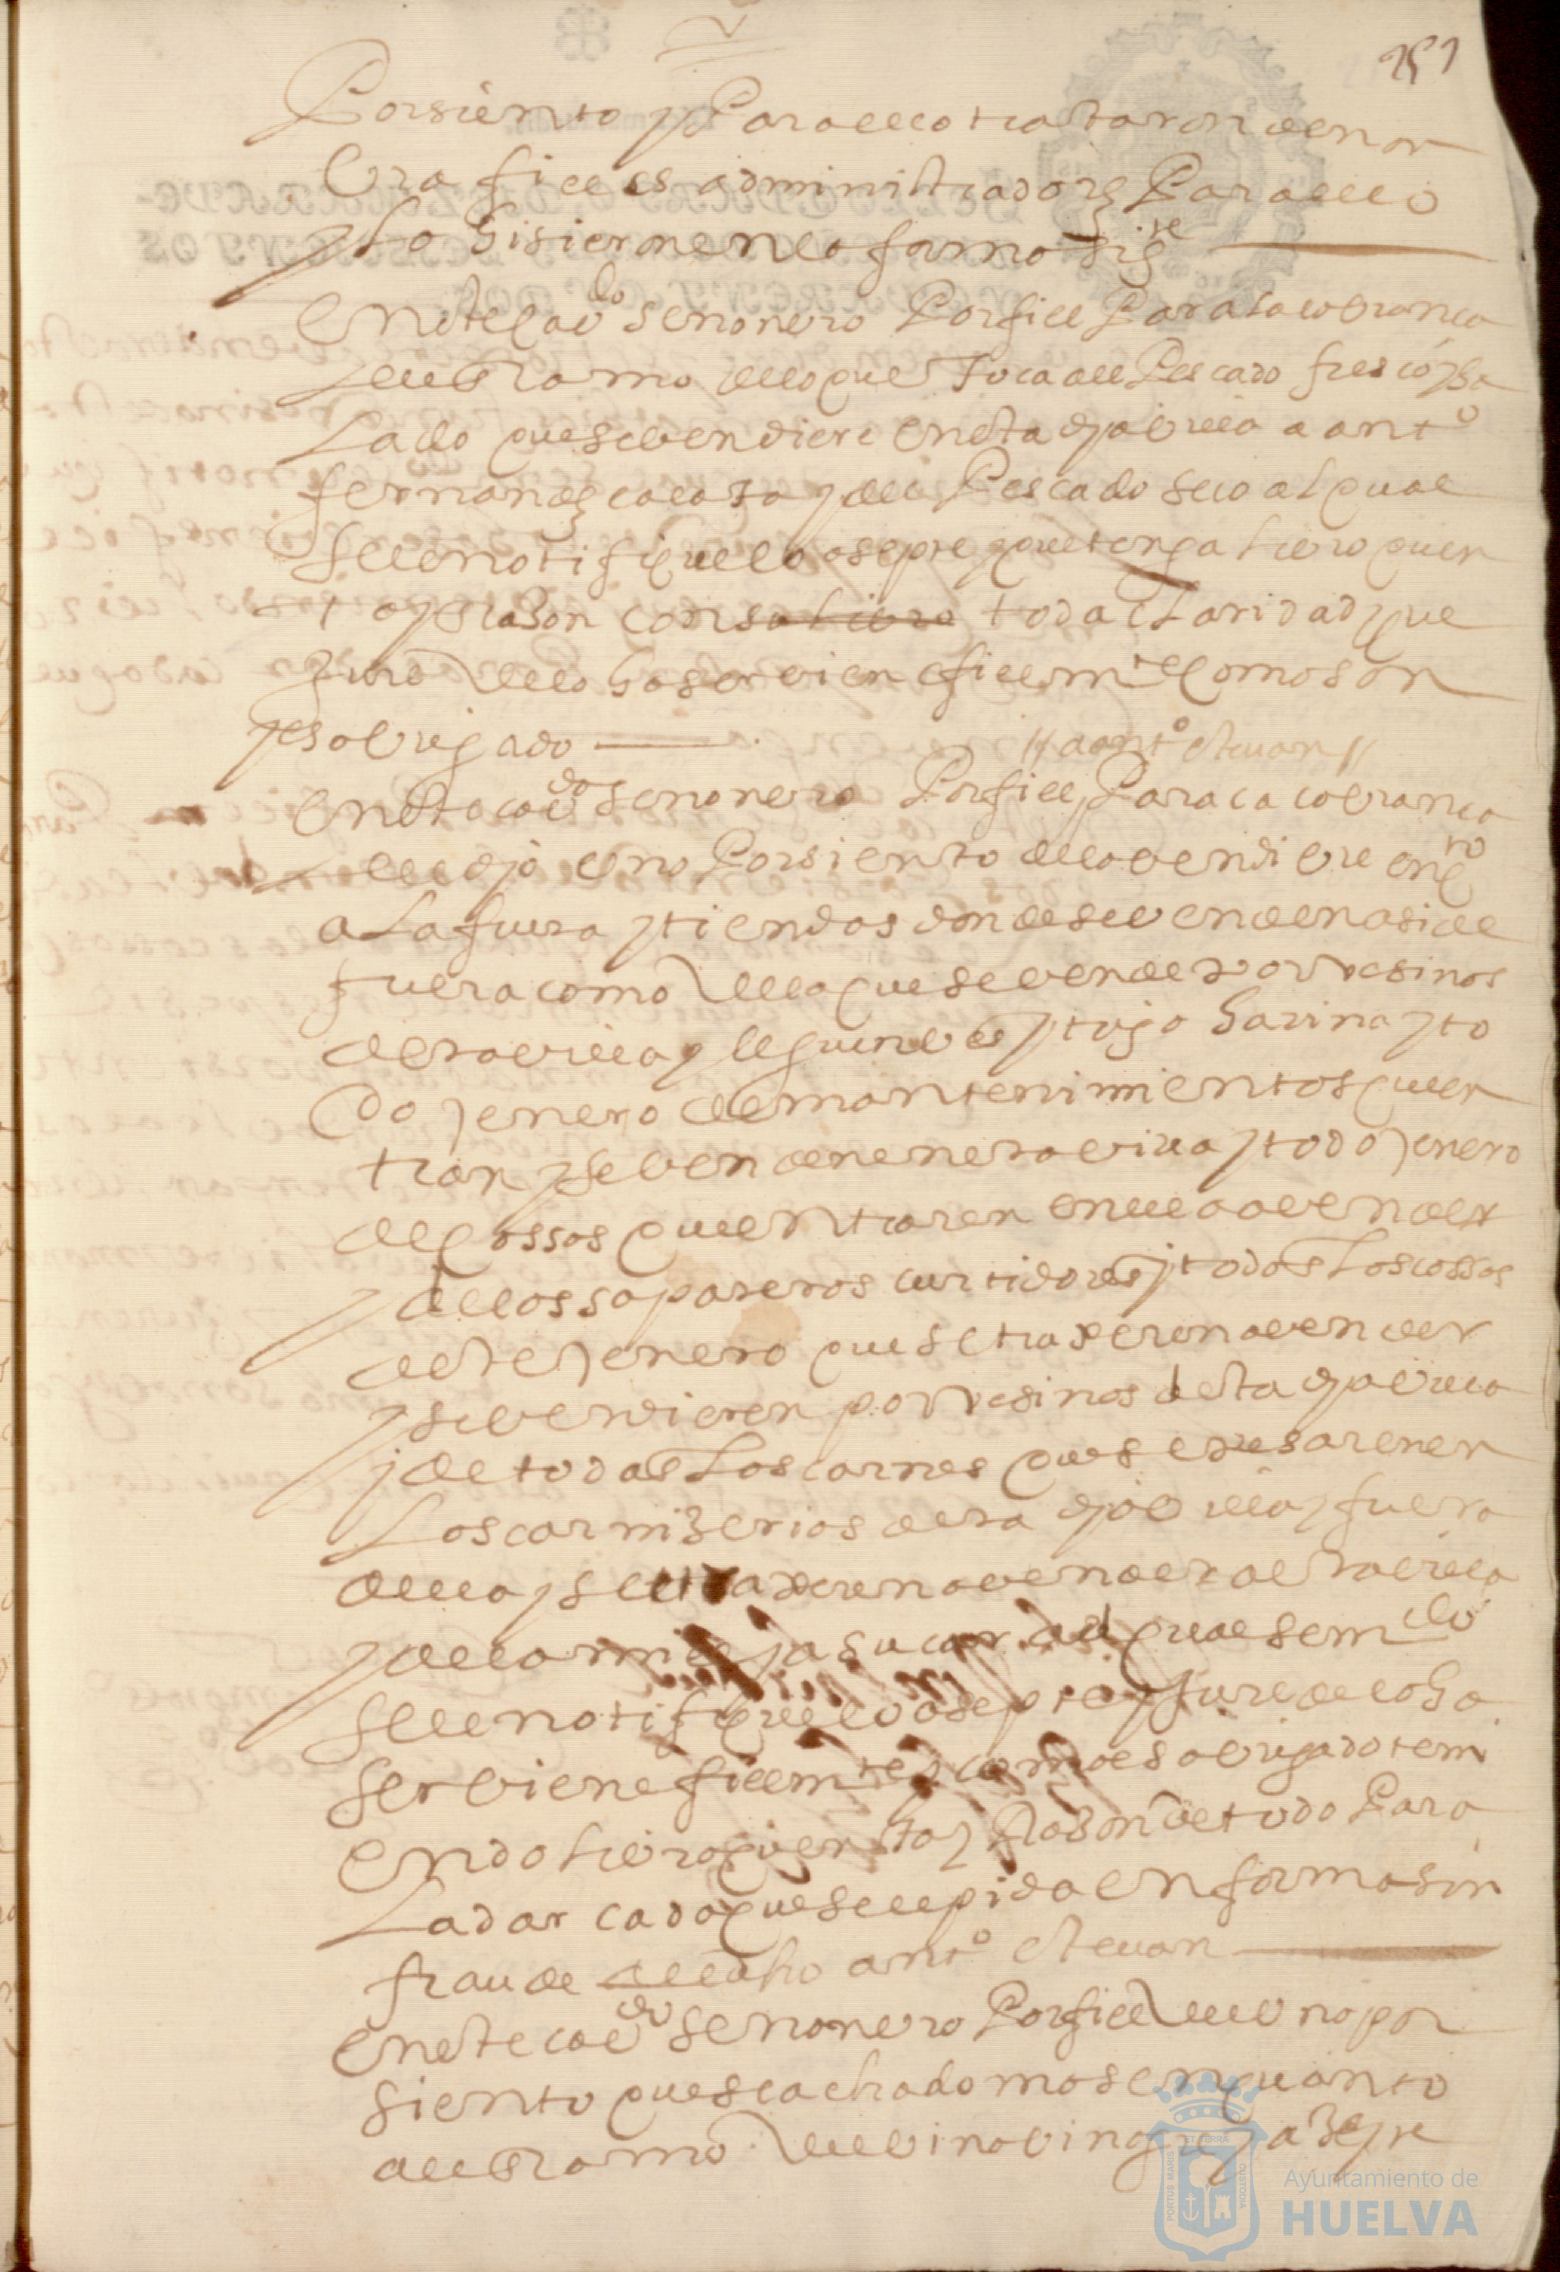 251
Porsiento y Para ello trataron de non
brar fieles administradores Para ello
y lo hisieron en la forma sigte
En este cavdo se nonvro Por fiel Para la cobransa
del Ramo de lo que toca al Pescado fresco y sa
lado que se vendiere en esta dha villa a antº
fernandez y del Pescado seco al qual
se le notifique lo asepte y que tenga libro quen
ta y Rason con su libro toda claridad y que
jure de lo haser bien e fielmte como son
y es obligado // a antº estevan //
En este cavdo se nonvro Por fiel Para la cobransa
del dho uno Porsiento de lo vendible
a la fuera y tiendas donde se venden asi de
fuera como de lo que se vende por vesinos
desta villa y legunbres y trigo harina y to
do jenero de mantenimientos que en
tran y se venden en esta villa y todo jenero
de cossas que entraren en ella a vender
y de los sapateros curtidores y todas las cossas
deste jenero que se traxeren a vender
y se vendieren por vesinos desta dha villa
y de todas las carnes que se pesaren en
las carniserias desta dha villa y fuera
della y se traxeren a vender a esta villa
y de la miel y asucar al qual se mdo
se le notifique lo asepte y jure de lo ha
ser bien e fielmte y como es obligado teni
endo libro quenta y Rason de todo Para
la dar cada que se le pida en forma sin
fraude antº estevan
En este cavdo se nonvro Por fiel del uno por
siento que se a echado mas en quanto
al Ramo del vino vinagre y aseyte
Ayuntamiento de
HUELVA